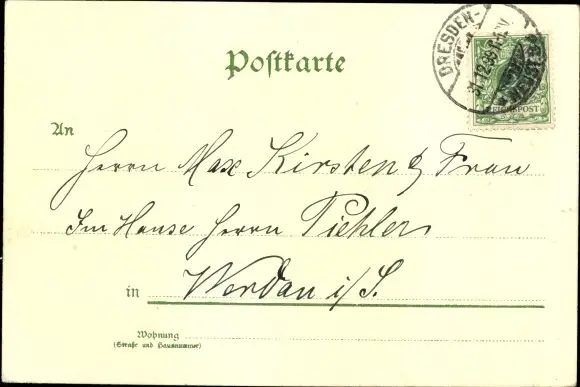 DRESDEN-
31.12.99
REICHSPOST
Postkarte
An
Herrn Max Kirsten & Frau
Im Hause Herrn Piehler
in Werdau i/S.
Wohnung
(Straße und Hausnummer)